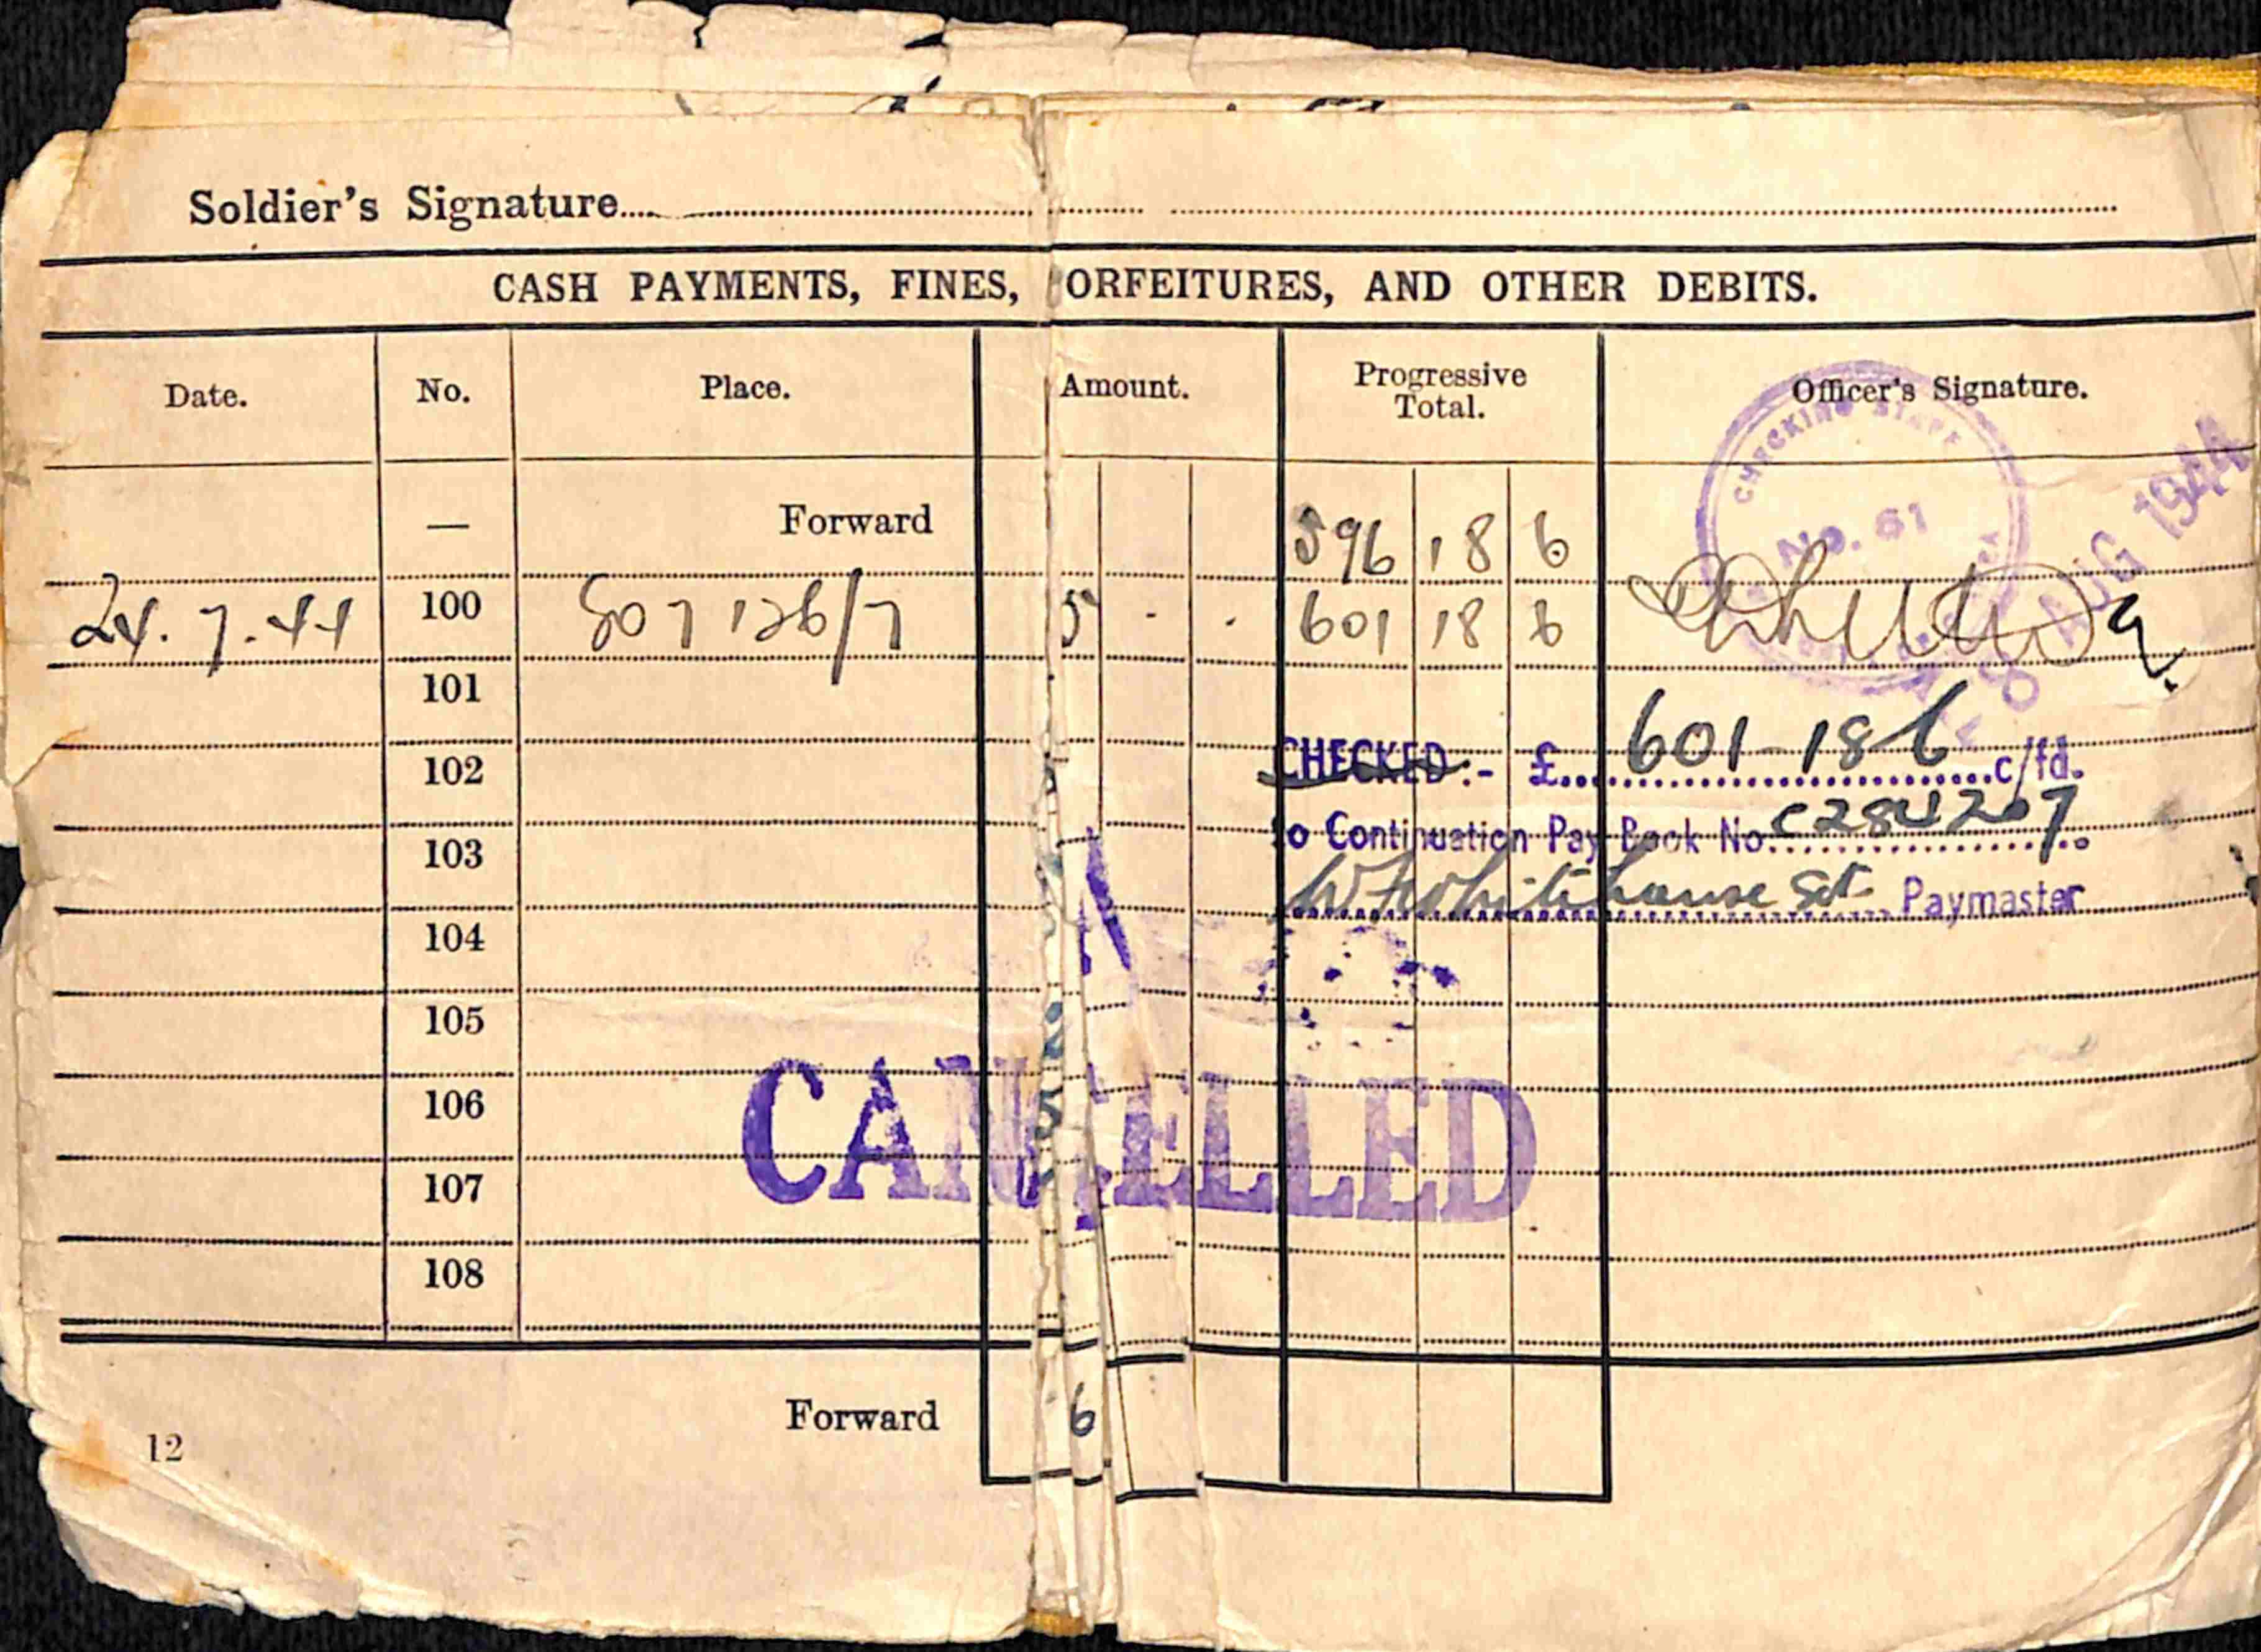 Soldier's Signature
CASH PAYMENTS, FINES, ORFEITURES, AND OTHER DEBITS.
Date. No. Place. Amount. Progressive Total. Officer's Signature.
— Forward 596 18 6
24.7.44 100 5 - - 601 18 6
101
CHECKED:- £ 601-18-6 c/fd.
102
o Continuation Pay Book No. C284207
103
W Whitehouse Sgt Paymaster
104
105
106
CANCELLED
107
108
Forward 6
12
CHECKING STAFF
No. 61
AUG 1944